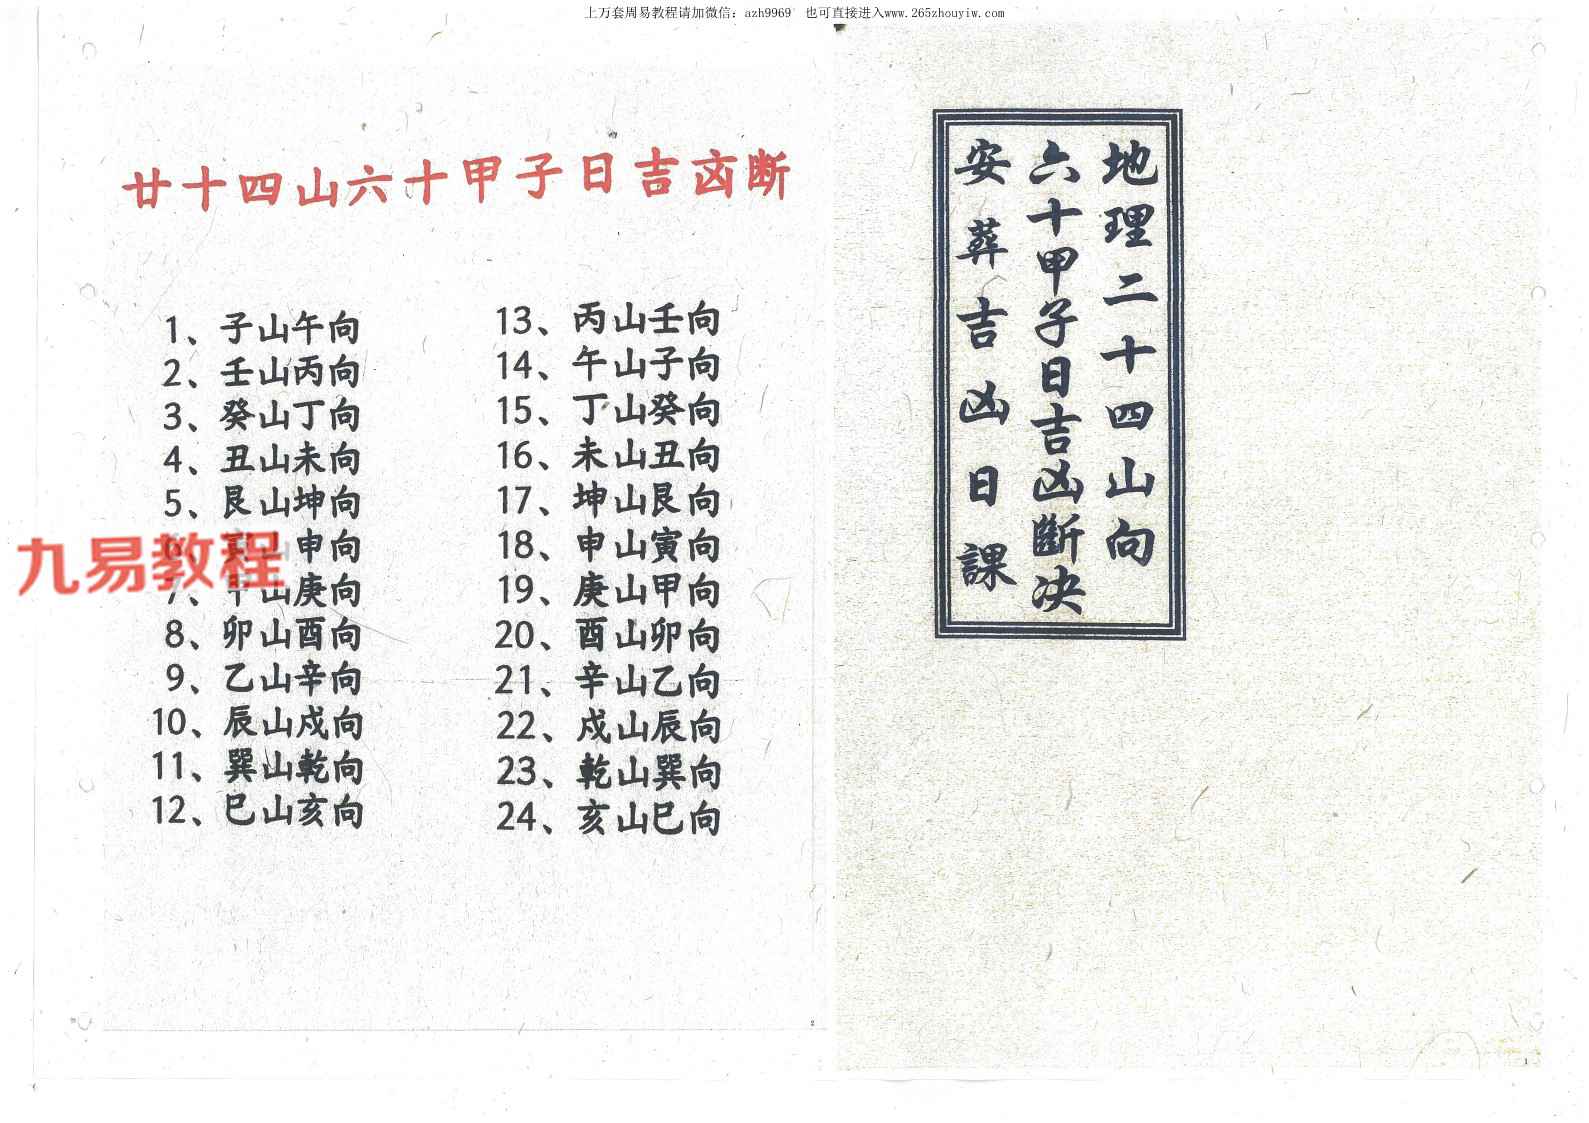 上万套周易教程请加微信：azh9969 也可直接进入www.265zhouyiw.com
地理二十四山向
六十甲子日吉凶斷决
安葬吉凶日課
1
廿十四山六十甲子日吉凶断
1、子山午向
2、壬山丙向
3、癸山丁向
4、丑山未向
5、艮山坤向
6、寅山申向
7、甲山庚向
8、卯山酉向
9、乙山辛向
10、辰山戍向
11、巽山乾向
12、巳山亥向
13、丙山壬向
14、午山子向
15、丁山癸向
16、未山丑向
17、坤山艮向
18、申山寅向
19、庚山甲向
20、酉山卯向
21、辛山乙向
22、戍山辰向
23、乾山巽向
24、亥山巳向
九易教程
2